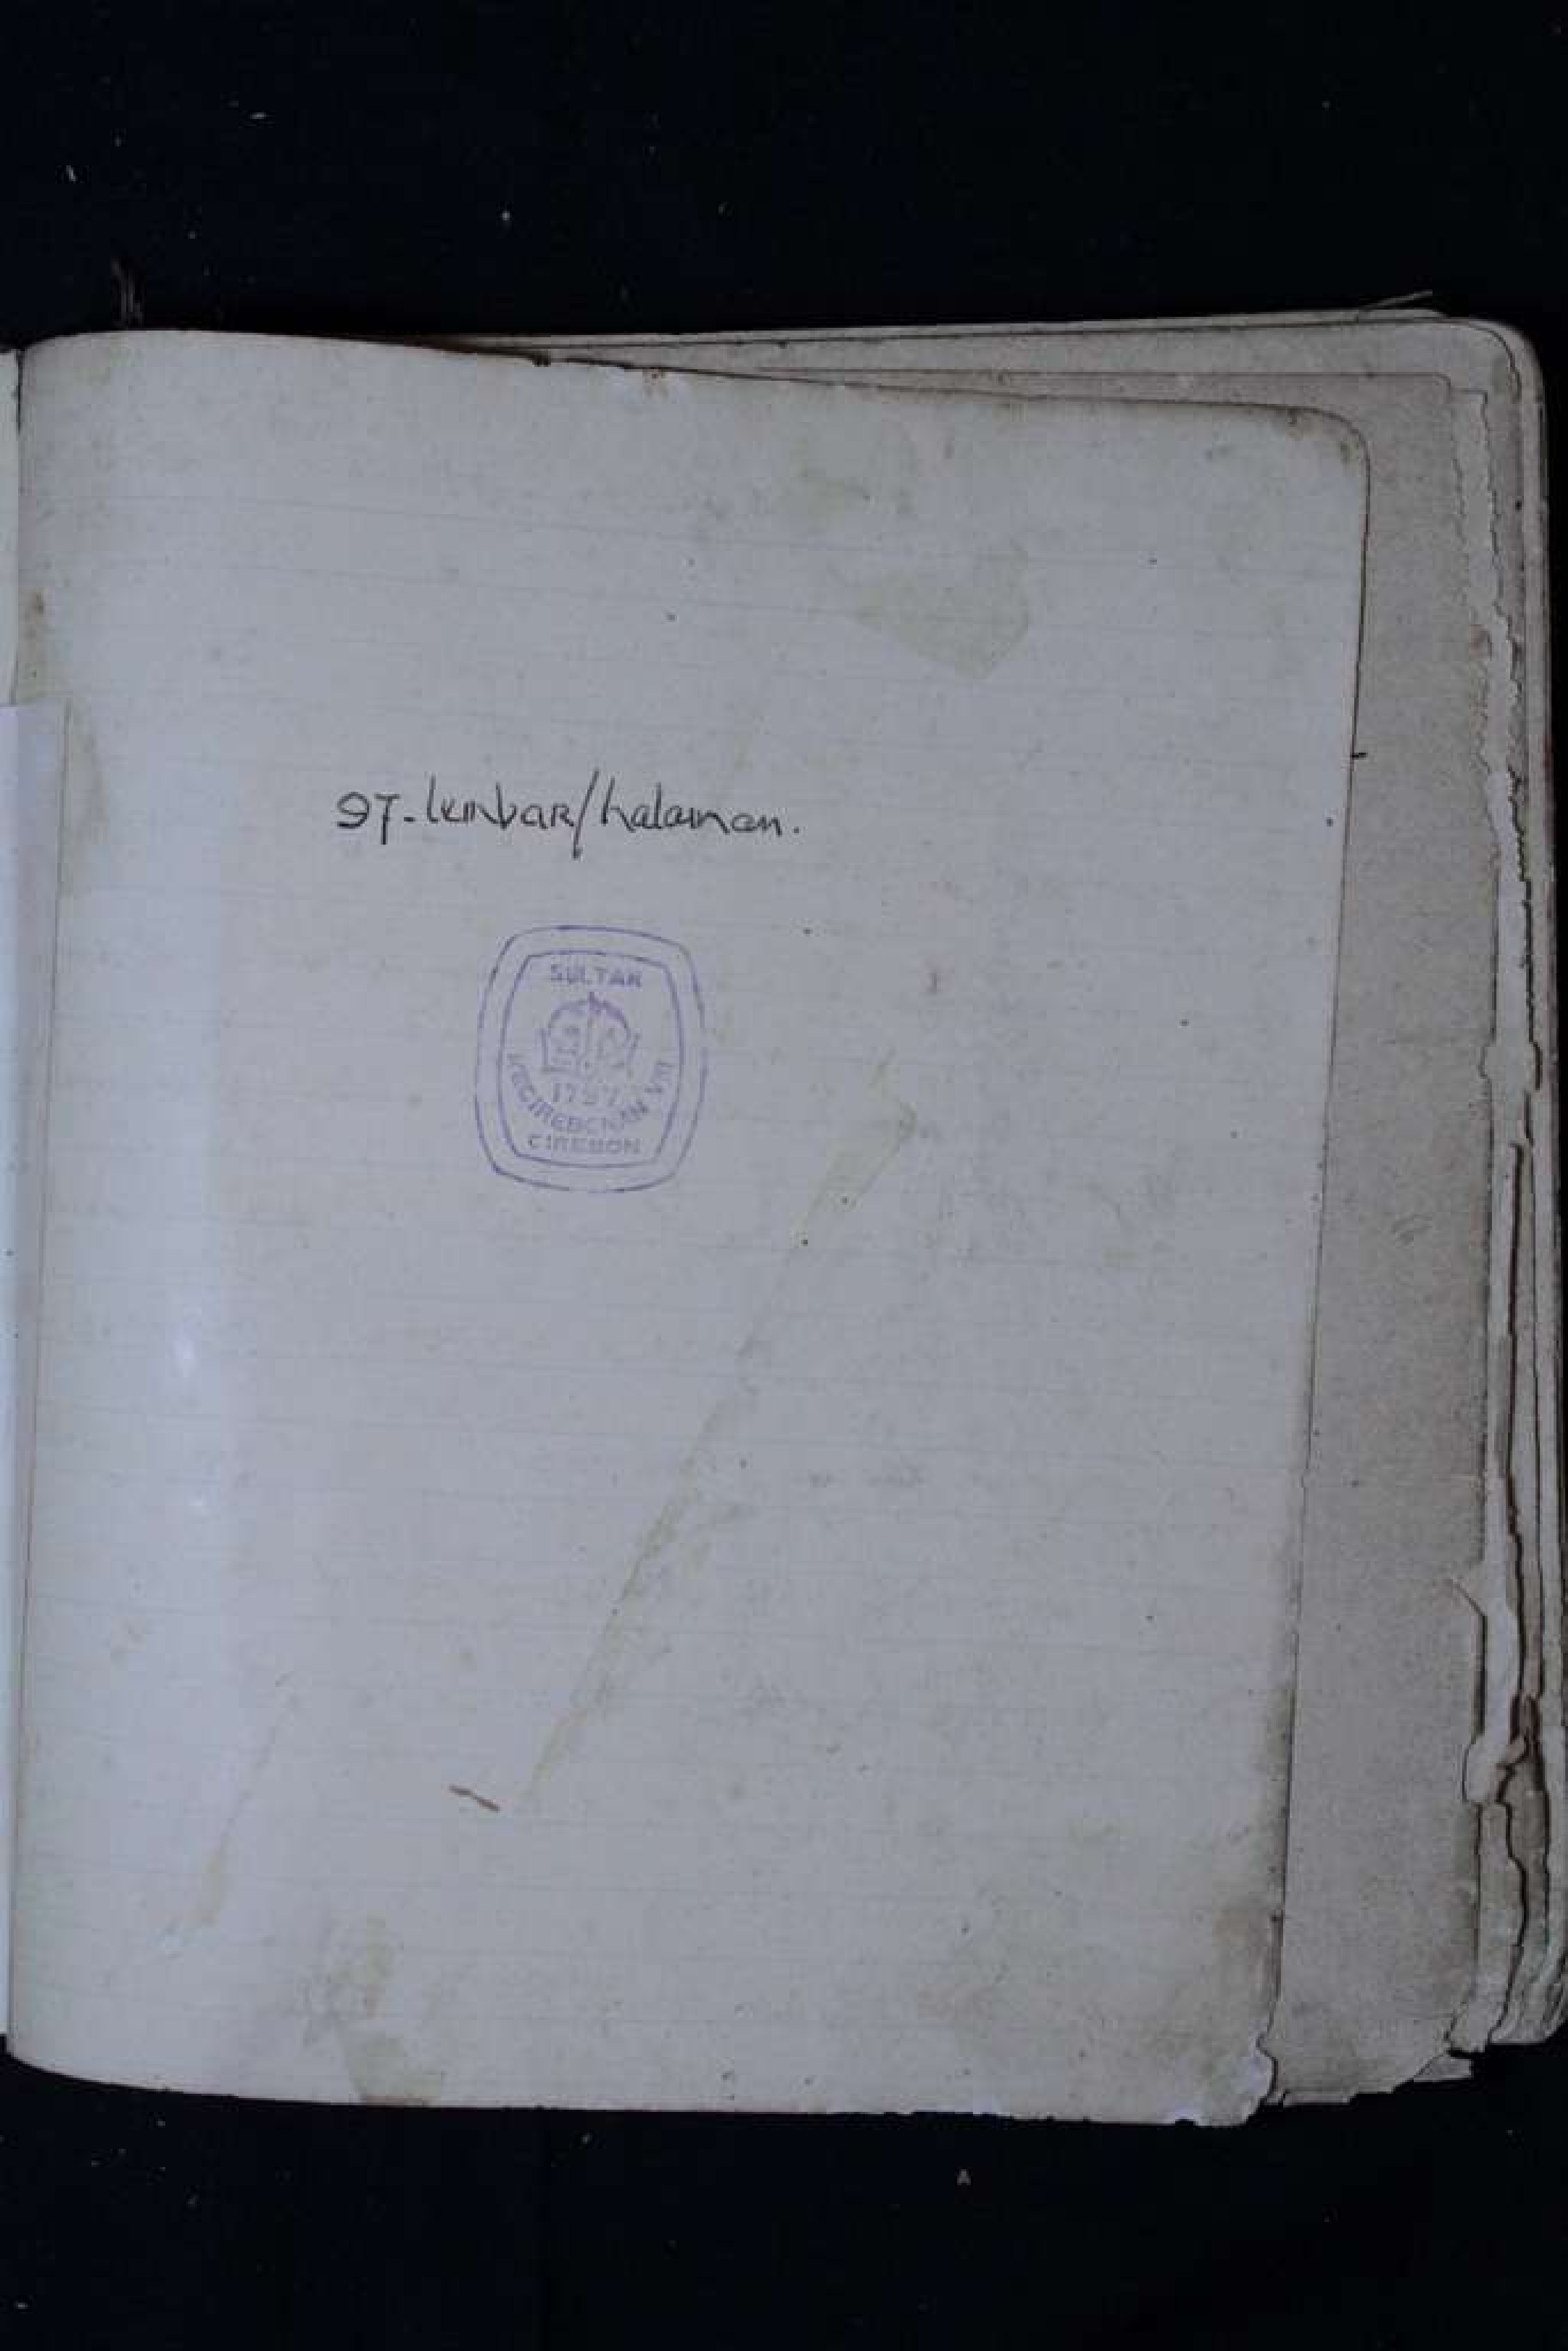 97-lembar/halaman.
SULTAN
1797
KECIREBONAN VIII
CIREBON